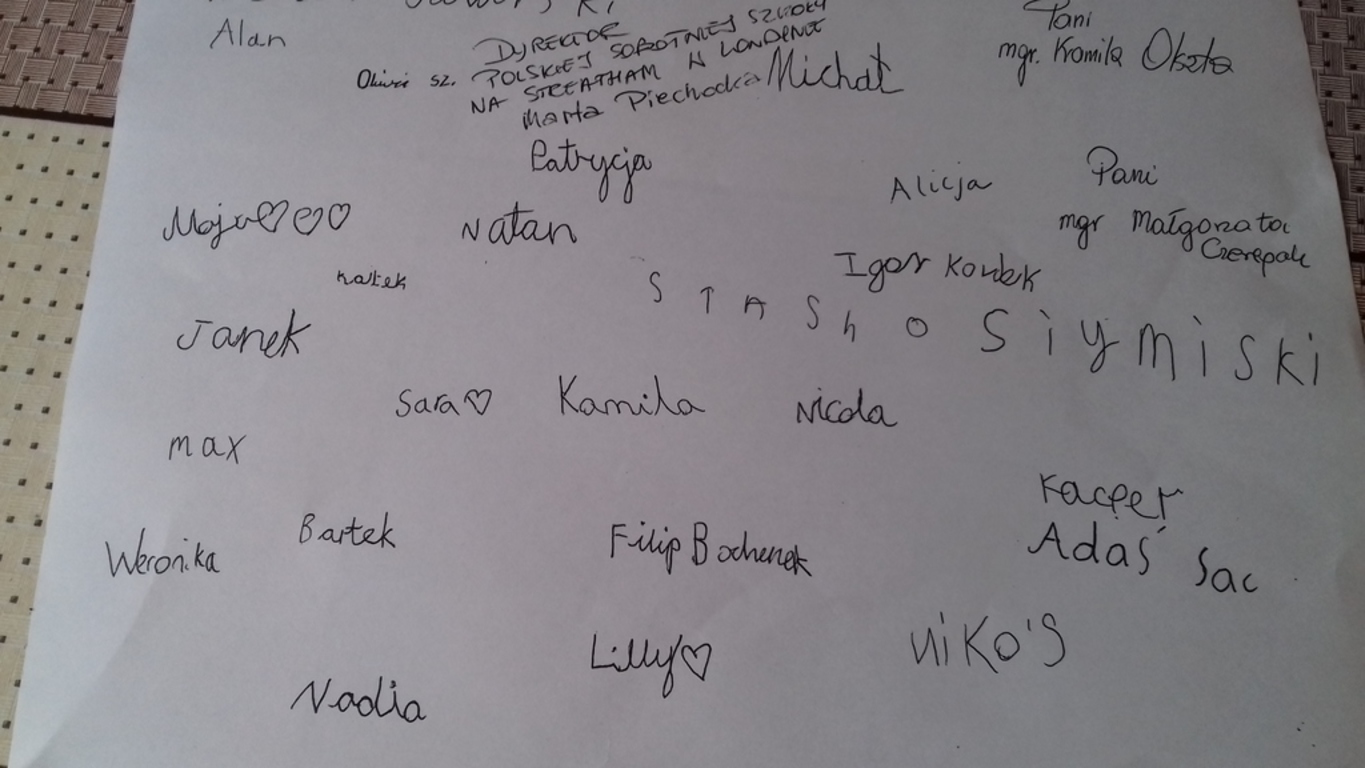 Alan
DYREKTOR
POLSKIEJ SOBOTNIEJ SZKOŁY
NA STREATHAM W LONDYNIE
Marta Piechocka
sz.
Michał
Pani
mgr. Kamila
Patrycja
Alicja
Pani
mgr Małgorzata
Czerepak
Maja♡♡♡
Natan
Igor
STASh o SiyMiSKi
Janek
Sara♡
Kamila
Nicola
max
Kacper
Adaś Sac
Weronika
Bartek
Filip Bochenek
Lilly♡
NiKO'S
Nadia